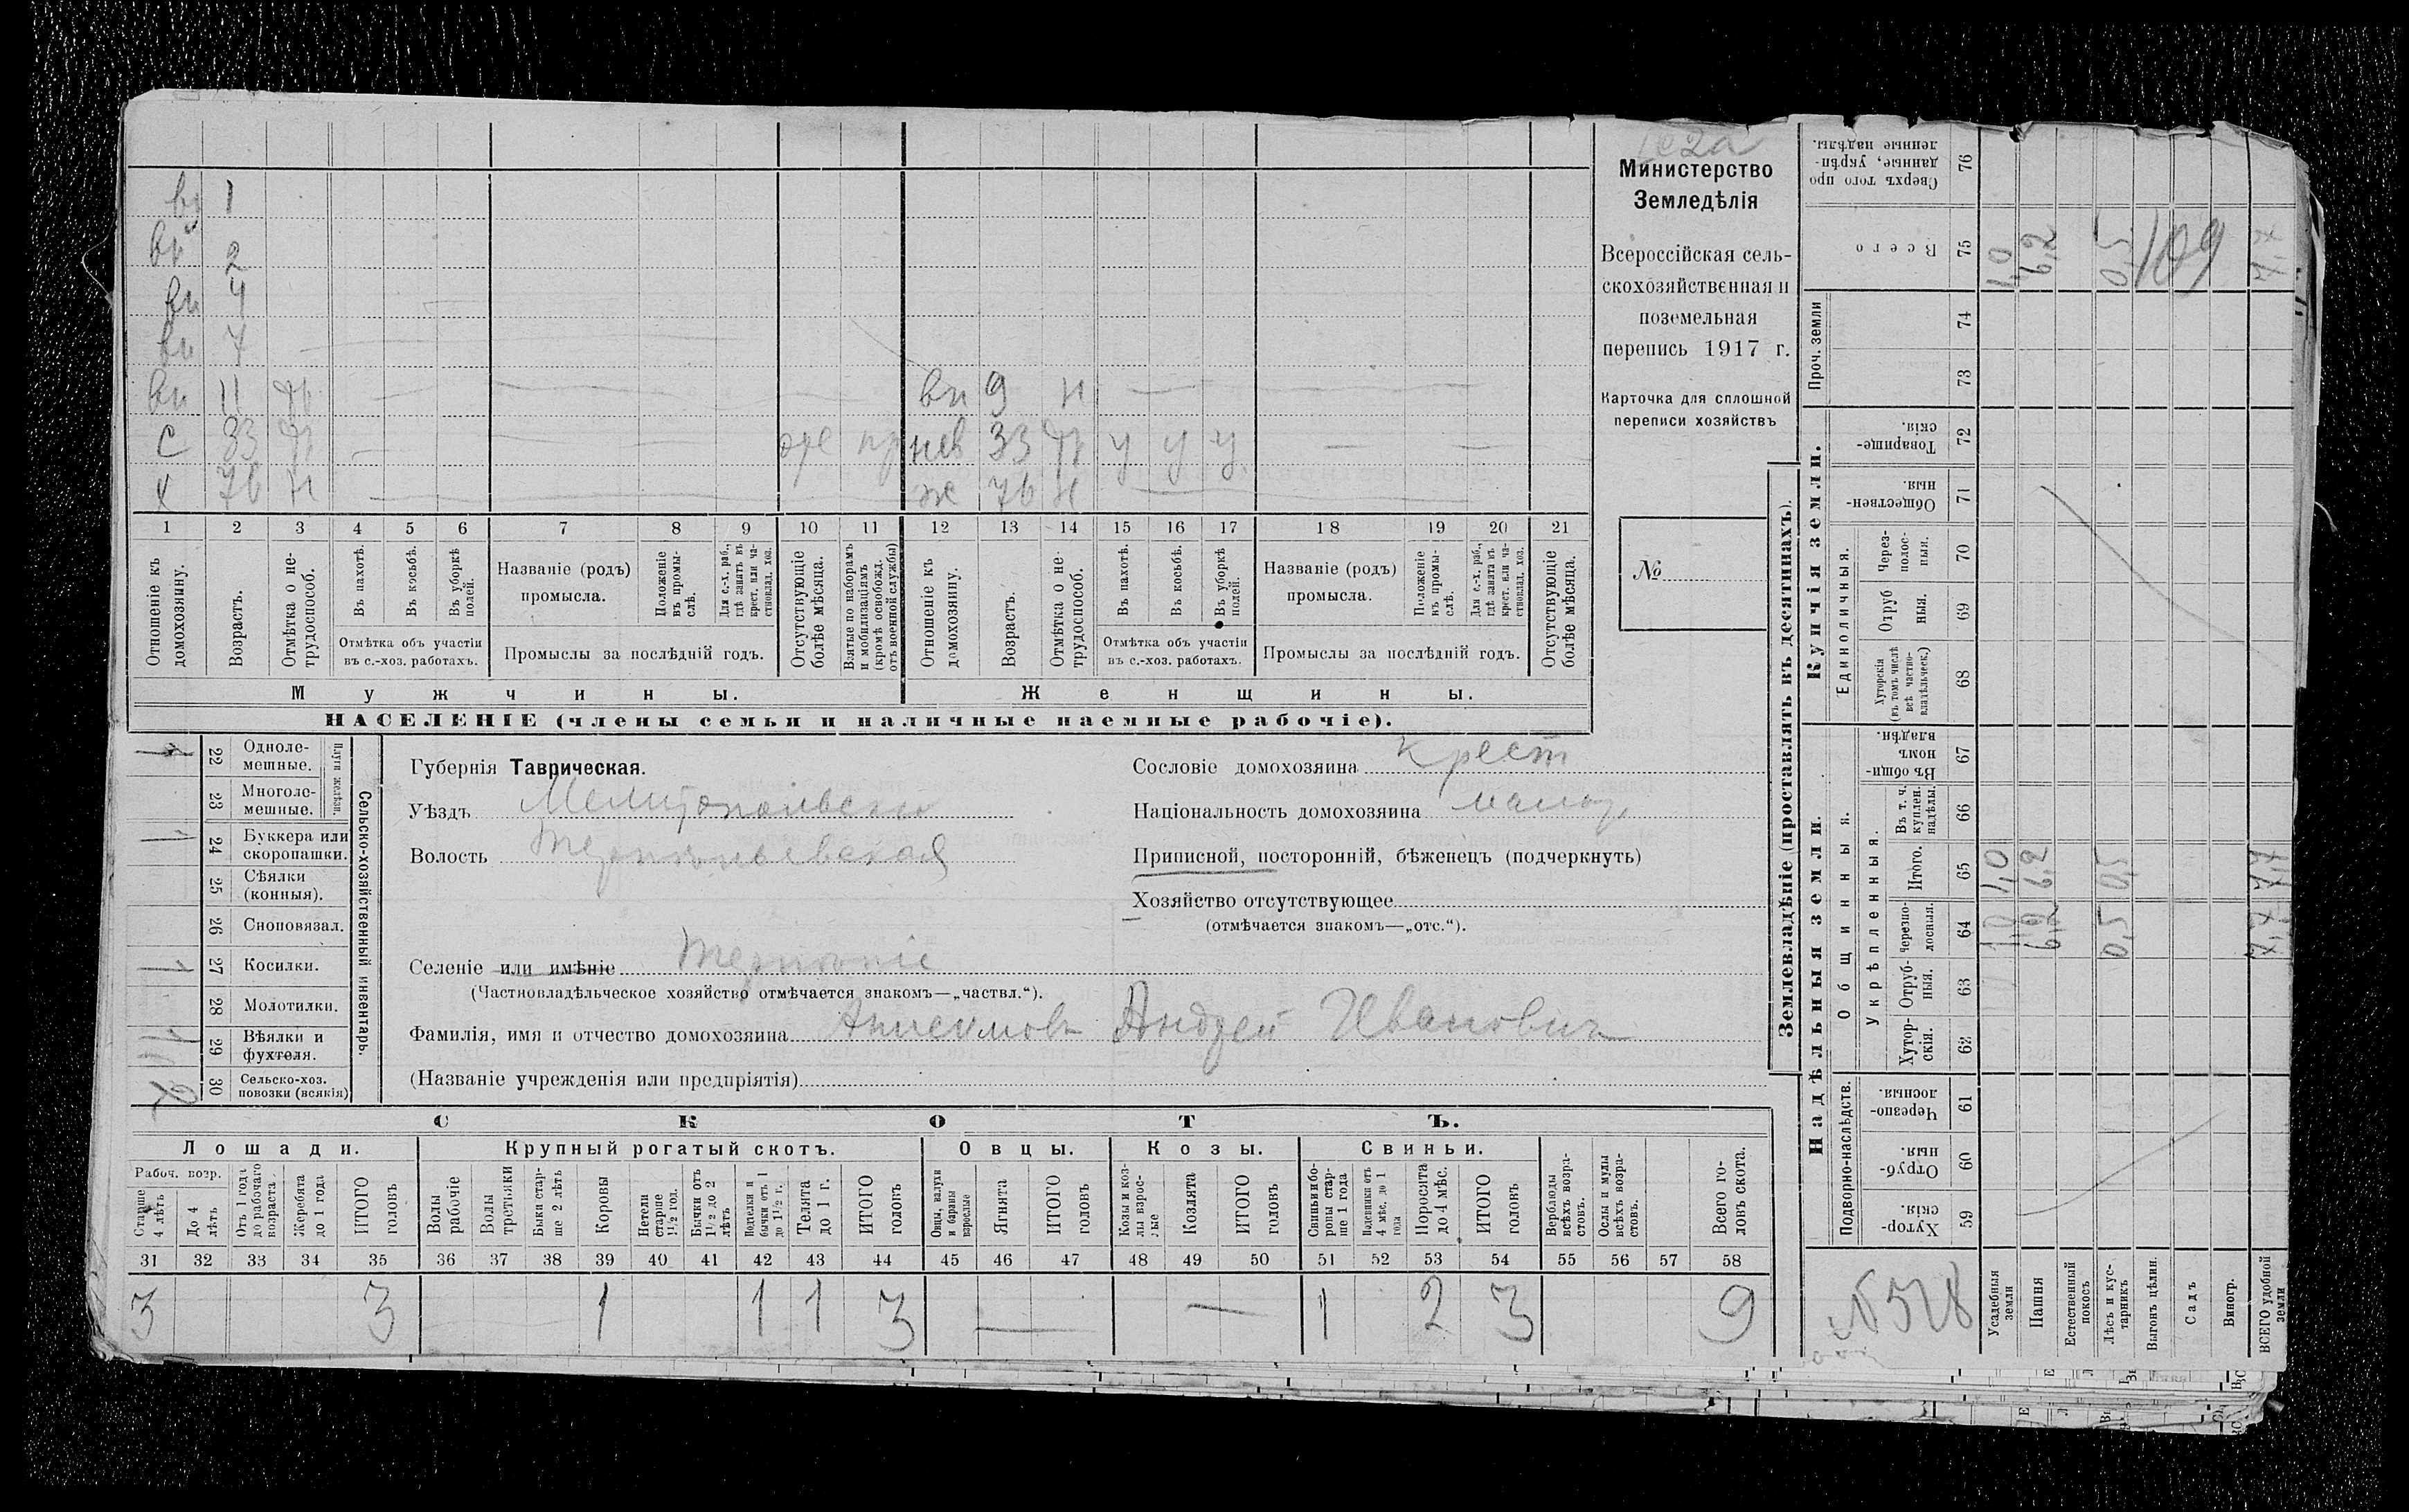 вн 1
вн 2
вн 4
вн 7
вн 11 вн 9 н
С 33 нев 33 у у у
Х 76 н ж 76 н
1 2 3 4 5 6 7 8 9 10 11 12 13 14 15 16 17 18 19 20 21
Отношеніе къ домохозяину.
Возрастъ.
Отмѣтка о нетрудоспособ.
Въ пахотѣ.
Въ косьбѣ.
Въ уборкѣ полей.
Отмѣтка объ участіи
въ с.-хоз. работахъ.
Названіе (родъ)
промысла.
Положеніе въ промыслѣ.
Для с.-х. раб., гдѣ занятъ въ крест. или частновлад. хоз.
Промыслы за послѣдній годъ.
Отсутствующіе болѣе мѣсяца.
Взятые по наборамъ и мобилизаціямъ (кромѣ освобожд. отъ военной службы)
Отношеніе къ домохозяину.
Возрастъ.
Отмѣтка о нетрудоспособ.
Въ пахотѣ.
Въ косьбѣ.
Въ уборкѣ полей.
Отмѣтка объ участіи
въ с.-хоз. работахъ.
Названіе (родъ)
промысла.
Положеніе въ промыслѣ.
Для с.-х. раб., гдѣ занята въ крест. или частновлад. хоз.
Промыслы за послѣдній годъ.
Отсутствующіе болѣе мѣсяца.
Мужчины. Женщины.
НАСЕЛЕНІЕ (члены семьи и наличные наемные рабочіе).
Министерство
Земледѣлія
Всероссійская сель-
скохозяйственная и
поземельная
перепись 1917 г.
Карточка для сплошной
переписи хозяйствъ
№
Сельско-хозяйственный инвентарь.
Плуги желѣзн.
22 Однолемешные.
23 Многолемешные.
1 24 Буккера или скоропашки.
25 Сѣялки (конныя).
26 Сноповязал.
1 27 Косилки.
28 Молотилки.
29 Вѣялки и фухтеля.
2 30 Сельско-хоз. повозки (всякія)
Губернія Таврическая.
Уѣздъ Мелитопольскій
Волость Терпѣньевская
Селеніе или имѣніе Терпѣніе
(Частновладѣльческое хозяйство отмѣчается знакомъ—„частвл.“).
Фамилія, имя и отчество домохозяина Анисимовъ Андрей Ивановичъ
(Названіе учрежденія или предпріятія)
Сословіе домохозяина крест
Національность домохозяина малор.
Приписной, посторонній, бѣженецъ (подчеркнуть)
Хозяйство отсутствующее
(отмѣчается знакомъ—„отс.“).
СКОТЪ.
Лошади. Крупный рогатый скотъ. Овцы. Козы. Свиньи.
Рабоч. возр.
Старше 4 лѣтъ
До 4 лѣтъ
Отъ 1 года до рабочаго возраста
Жеребята до 1 года
ИТОГО головъ
Волы рабочіе
Волы третьяки
Быки старше 2 лѣтъ
Коровы
Нетели старше 1½ год.
Бычки отъ 1½ до 2 лѣтъ
Подтелки и бычки отъ 1 до 1½ г.
Телята до 1 г.
ИТОГО головъ
Овцы, валухи и бараны взрослые
Ягнята
ИТОГО головъ
Козы и козлы взрослые
Козлята
ИТОГО головъ
Свиньи и боровы старше 1 года
Подсвинки отъ 4 мѣс. до 1 года
Поросята до 4 мѣс.
ИТОГО головъ
Верблюды всѣхъ возрастовъ.
Ослы и мулы всѣхъ возрастовъ.
Всего головъ скота.
31 32 33 34 35 36 37 38 39 40 41 42 43 44 45 46 47 48 49 50 51 52 53 54 55 56 57 58
3 3 1 1 1 3 — — 1 2 3 9
Землевладѣніе (проставлять въ десятинахъ).
Купчія земли.
Надѣльныя земли.
Сверхъ того проданные, укрѣпленные надѣлы. 76
Всего 75 1,0 6,2 0,5 7,7
109
Проч. земли 74 73
Товарищескія. 72
Общественныя. 71
Единоличныя.
Черезполосныя. 70
Отрубныя. 69
Хуторскія (въ томъ числѣ всѣ частновладѣльческ.) 68
Общинныя.
Въ общинномъ владѣн. 67
Укрѣпленныя.
Въ т. ч. куплен. надѣлы. 66
Итого. 65 1,0 6,2 0,5 7,7
Черезполосныя. 64 1,0 6,2 0,5 7,7
Отрубныя. 63
Хуторскія. 62
Подворно-наслѣдств.
Черезполосныя. 61
Отрубныя. 60
Хуторскія. 59
№ 528
Усадебныя земли
Пашня
Естественный покосъ
Лѣсъ и кустарникъ
Выгонъ цѣлин.
Садъ
Виногр.
ВСЕГО удобной земли